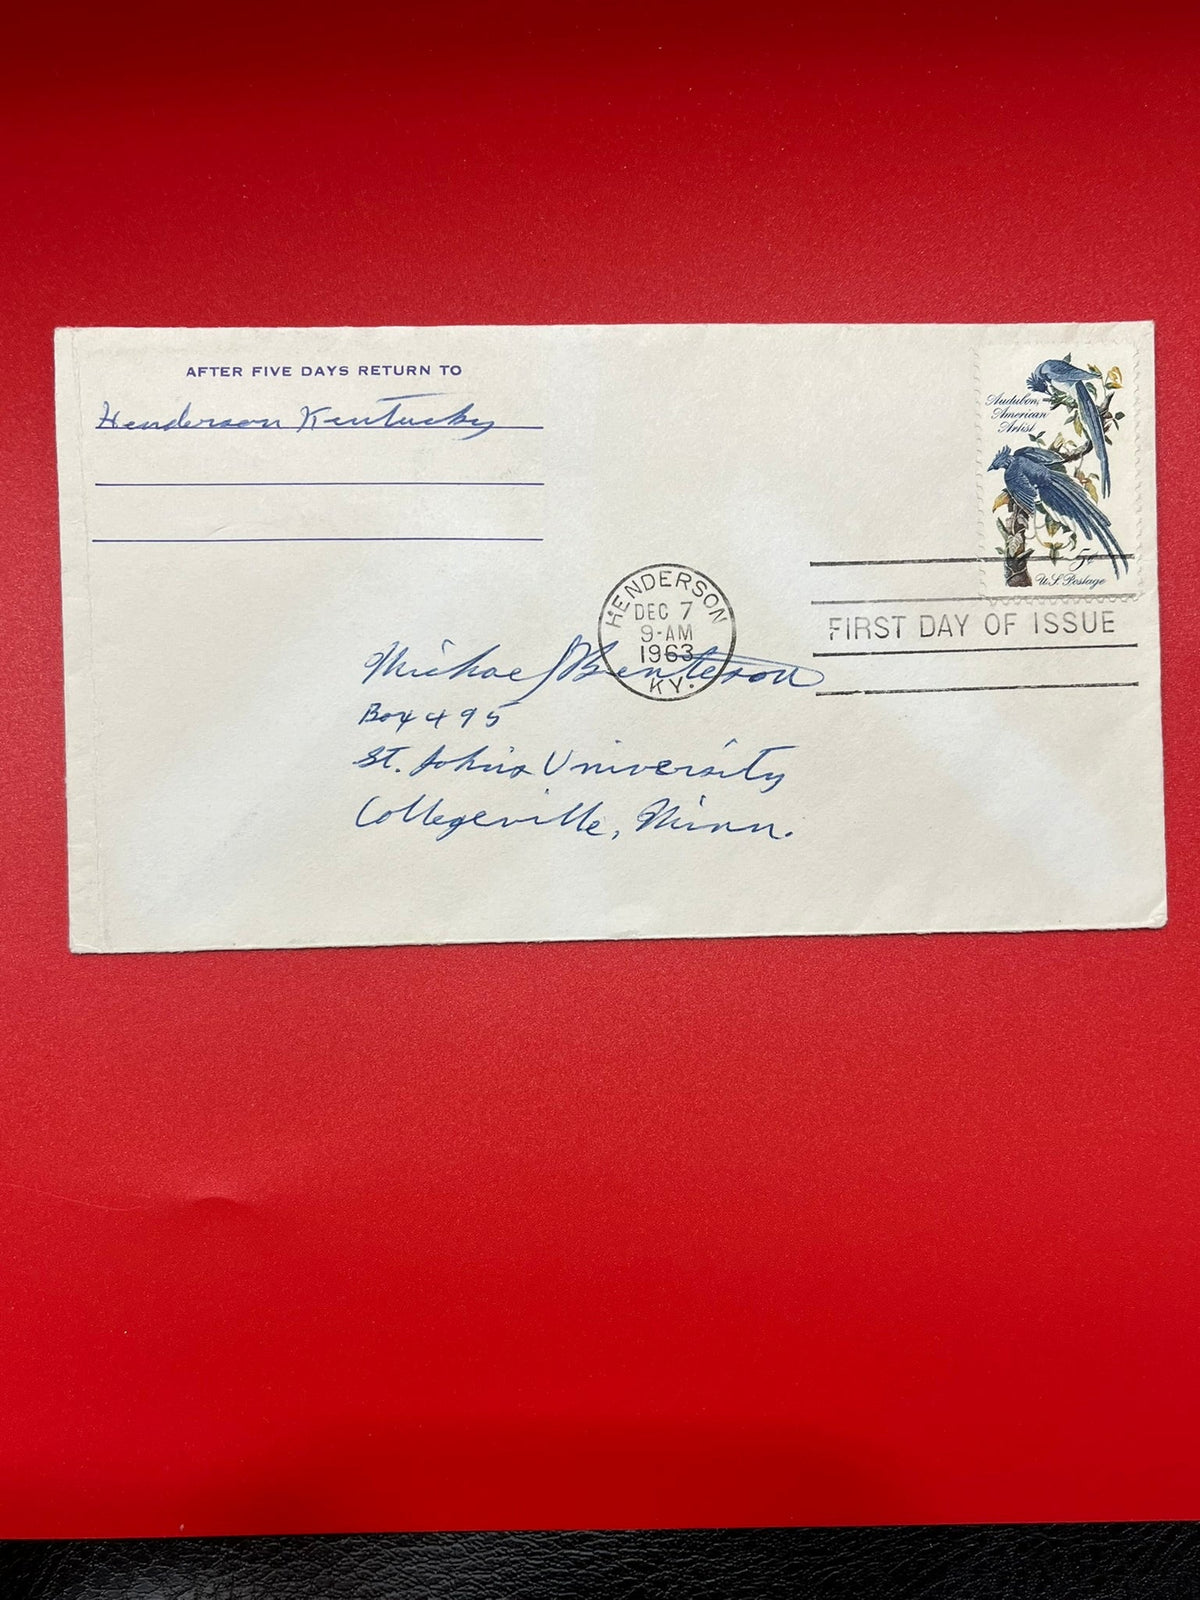 AFTER FIVE DAYS RETURN TO
Henderson Kentucky
Audubon,
American
Artist
5¢
U.S. Postage
HENDERSON
DEC 7
9-AM
1963
KY.
FIRST DAY OF ISSUE
Michael
Box 495
St. John's University
Collegeville, Minn.